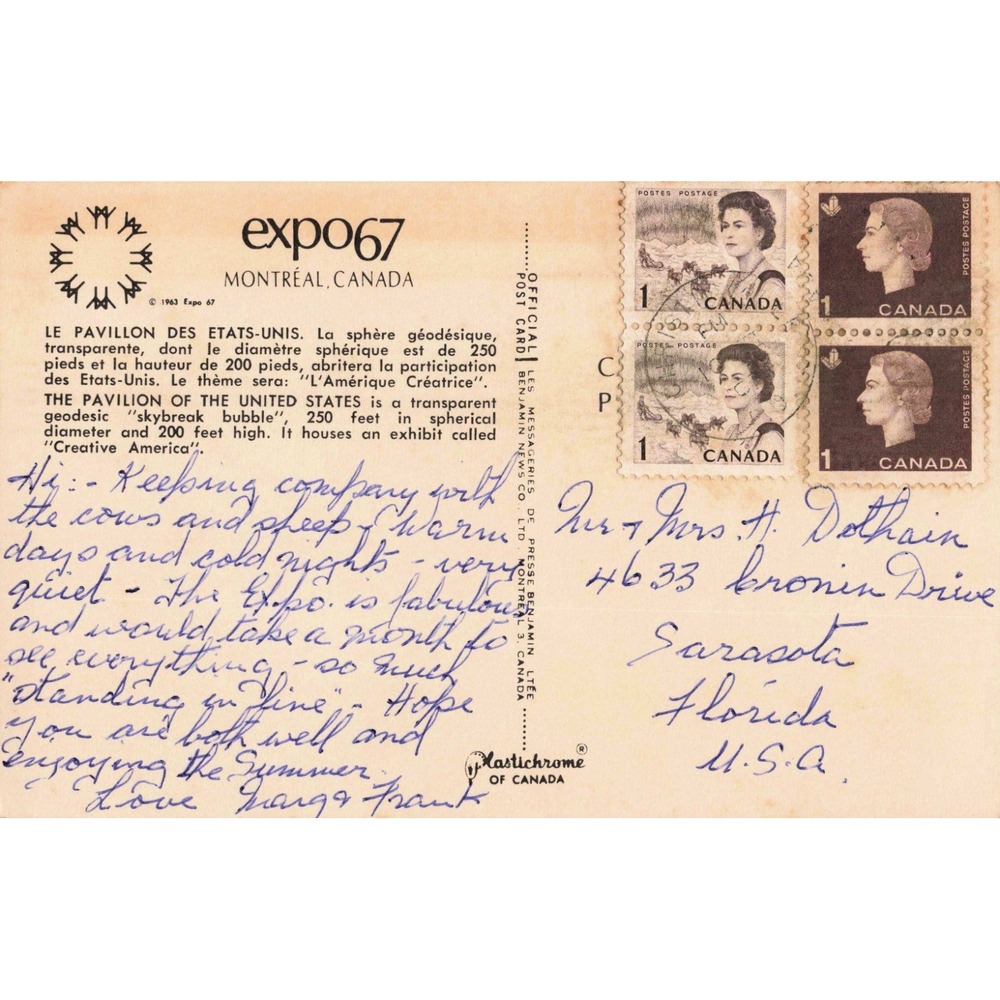 expo67
MONTRÉAL, CANADA
© 1963 Expo 67
LE PAVILLON DES ETATS-UNIS. La sphère géodésique,
transparente, dont le diamètre sphérique est de 250
pieds et la hauteur de 200 pieds, abritera la participation
des Etats-Unis. Le thème sera: "L'Amérique Créatrice".
THE PAVILION OF THE UNITED STATES is a transparent
geodesic "skybreak bubble", 250 feet in spherical
diameter and 200 feet high. It houses an exhibit called
"Creative America".
Hi:- Keeping company with
the cows and sheep - Warm
days and cold nights - very
quiet - The Expo. is fabulous
and would take a month to
see everything - so much
"standing in line" - Hope
you are both well and
enjoying the Summer.
Love Marg & Frank
OFFICIAL POST CARD
LES MESSAGERIES DE PRESSE BENJAMIN LTÉE
BENJAMIN NEWS CO. LTD. MONTREAL 3, CANADA
Plastichrome ®
OF CANADA
POSTES POSTAGE
1 CANADA
POSTES POSTAGE
1 CANADA
POSTES POSTAGE
1 CANADA
POSTES POSTAGE
1 CANADA
C
P
PM
Mr & Mrs. H. Dothain
4633 Cronin Drive
Sarasota
Florida
U.S.A.